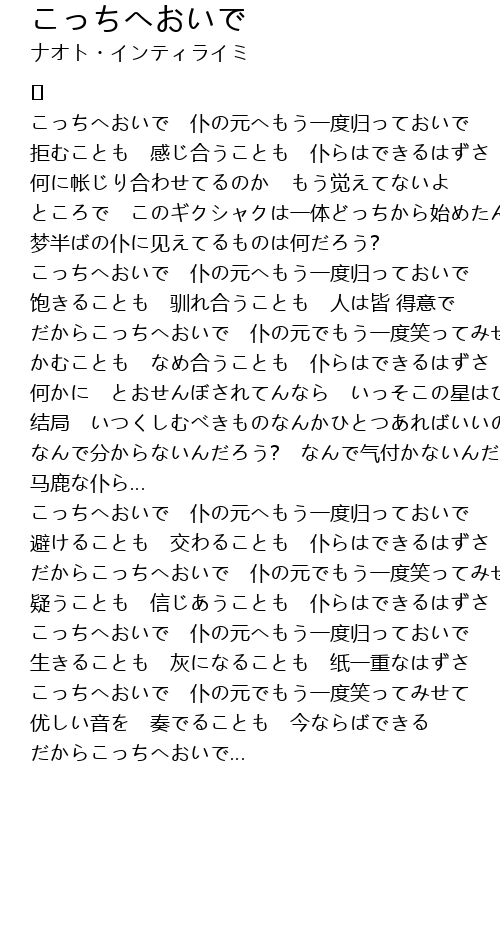 こっちへおいで
ナオト・インティライミ
[]
こっちへおいで　仆の元へもう一度归っておいで
拒むことも　感じ合うことも　仆らはできるはずさ
何に帐じり合わせてるのか　もう觉えてないよ
ところで　このギクシャクは一体どっちから始めたん
梦半ばの仆に见えてるものは何だろう?
こっちへおいで　仆の元へもう一度归っておいで
饱きることも　驯れ合うことも　人は皆 得意で
だからこっちへおいで　仆の元でもう一度笑ってみせ
かむことも　なめ合うことも　仆らはできるはずさ
何かに　とおせんぼされてんなら　いっそこの星はひ
结局　いつくしむべきものなんかひとつあればいいの
なんで分からないんだろう?　なんで气付かないんだ
马鹿な仆ら...
こっちへおいで　仆の元へもう一度归っておいで
避けることも　交わることも　仆らはできるはずさ
だからこっちへおいで　仆の元でもう一度笑ってみせ
疑うことも　信じあうことも　仆らはできるはずさ
こっちへおいで　仆の元へもう一度归っておいで
生きることも　灰になることも　纸一重なはずさ
こっちへおいで　仆の元でもう一度笑ってみせて
优しい音を　奏でることも　今ならばできる
だからこっちへおいで...